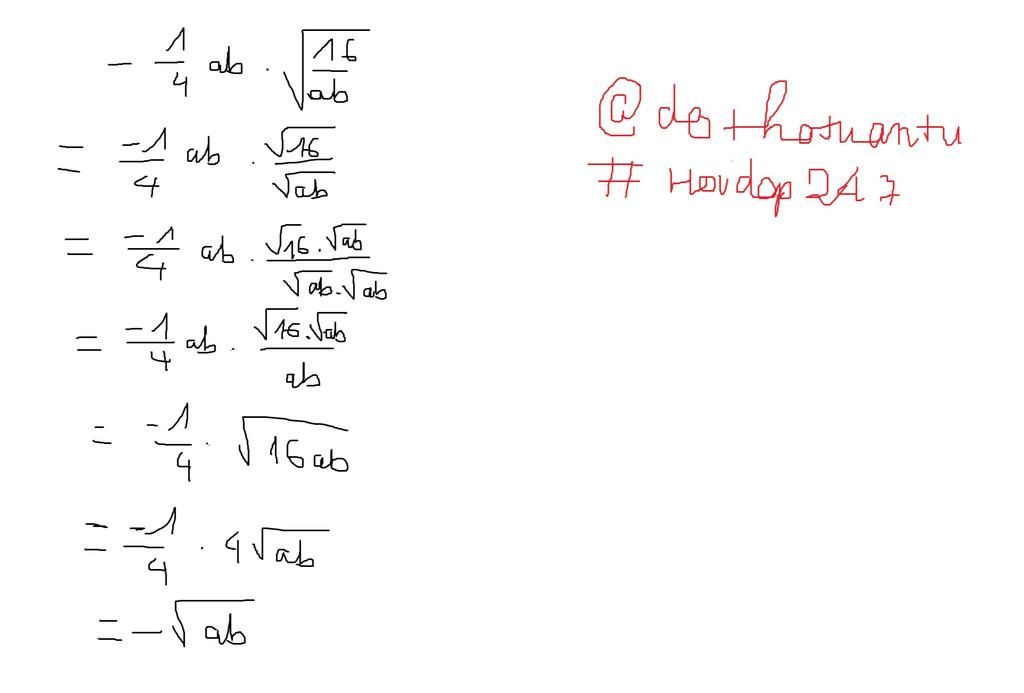 - 1/4 ab . √(16/ab)
= -1/4 ab . √16/√ab
= -1/4 ab . (√16 . √ab)/(√ab . √ab)
= -1/4 ab . (√16 . √ab)/ab
= -1/4 . √(16ab)
= -1/4 . 4√ab
= -√ab
#Hoidap247